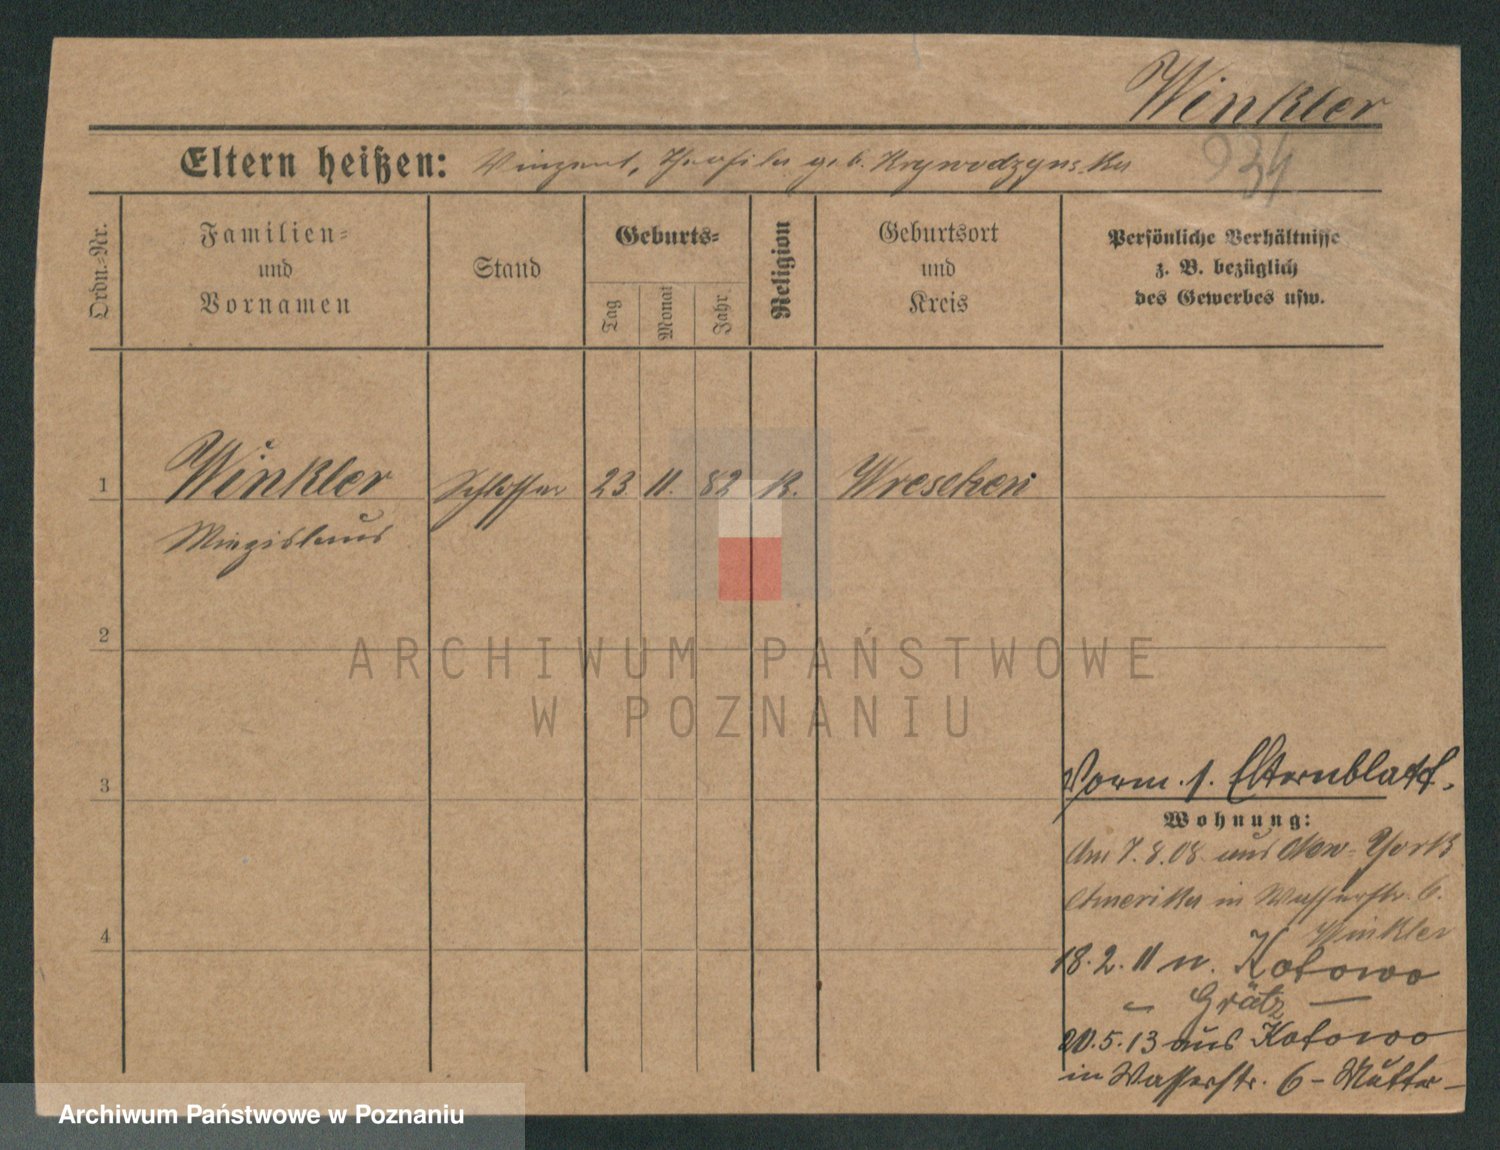 Winkler
934
Eltern heißen: Vinzent, Theofila geb. Krzywodzynska
Ordn.=Nr.
Familien=
und
Vornamen
Stand
Geburts=
Tag
Monat
Jahr
Religion
Geburtsort
und
Kreis
Persönliche Verhältnisse
z. B. bezüglich
des Gewerbes usw.
1 Winkler Schlosser 23. 11. 82 K. Wreschen
Miezislaus
ARCHIWUM PAŃSTWOWE
W POZNANIU
2
3
4
Vorm. s. Elternblatt.
Wohnung:
Am 7.8.08 aus New-York
Amerika in Wasserstr. 6.
Winkler
18.2.11 n. Kotowo
– Grätz –
20.5.13 aus Kotowo
in Wasserstr. 6 – Mutter –
Archiwum Państwowe w Poznaniu